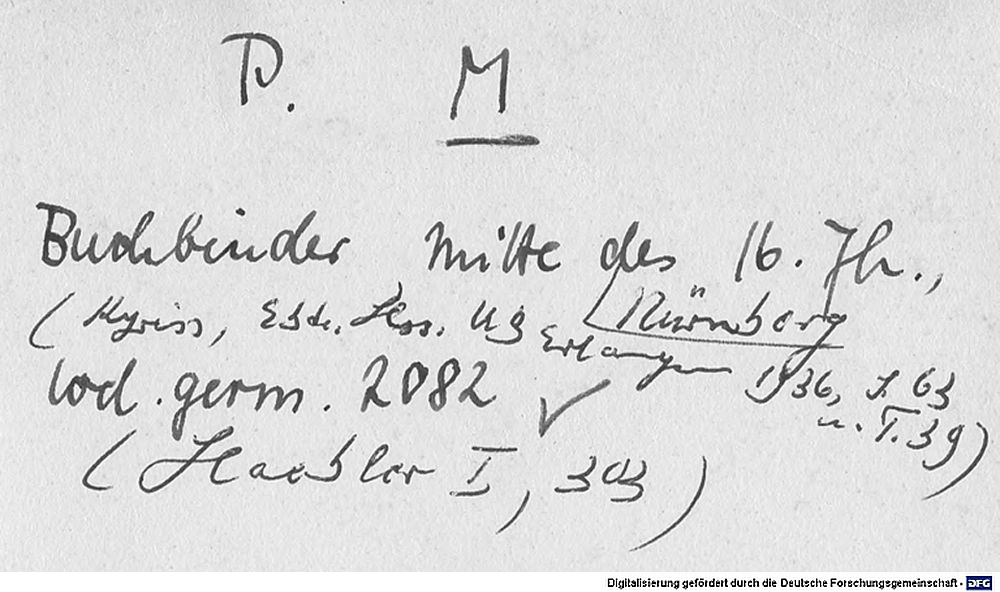 P. M
Buchbinder Mitte des 16. Jh.,
Nürnberg
(Kyriss, Hss. UB Erlangen 1936, S. 63
u. T. 39)
Cod. germ. 2082 ✓
(Haebler I, 303)
Digitalisierung gefördert durch die Deutsche Forschungsgemeinschaft - DFG